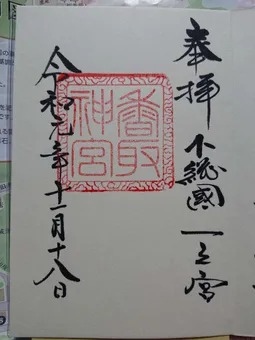 奉拝
下総國一之宮
香取神宮
令和元年十一月十八日